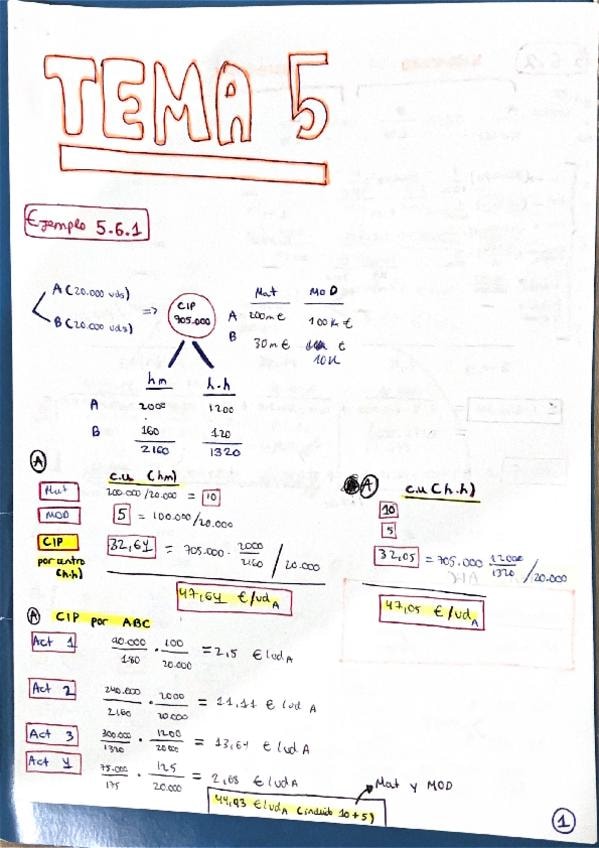 TEMA 5
Ejemplo 5.6.1
A (20.000 uds)
B (20.000 uds)
=>
CIP
705.000
Mat MOD
A 200m € 100K €
B 30m € € 10K
hm h.h
A 2000 1200
B 160 120
2160 1320
A
c.u (hm)
Mat 200.000/20.000 = 10
MOD 5 = 100.000/20.000
CIP 32,64 = 705.000 · 2000/2160 / 20.000
por centro
(h.h)
47,64 €/ud A
A c.u (h.h)
10
5
32,05 = 705.000 12000/1320 / 20.000
47,05 €/ud A
A CIP por ABC
Act 1 90.000/180 · 100/20.000 = 2,5 €/ud A
Act 2 240.000/2160 · 2000/20.000 = 11,11 €/ud A
Act 3 300.000/1320 · 1200/20.000 = 13,64 €/ud A
Act 4 75.000/175 · 125/20.000 = 2,68 €/ud A
Mat y MOD
44,93 €/ud A (incluido 10+5)
1